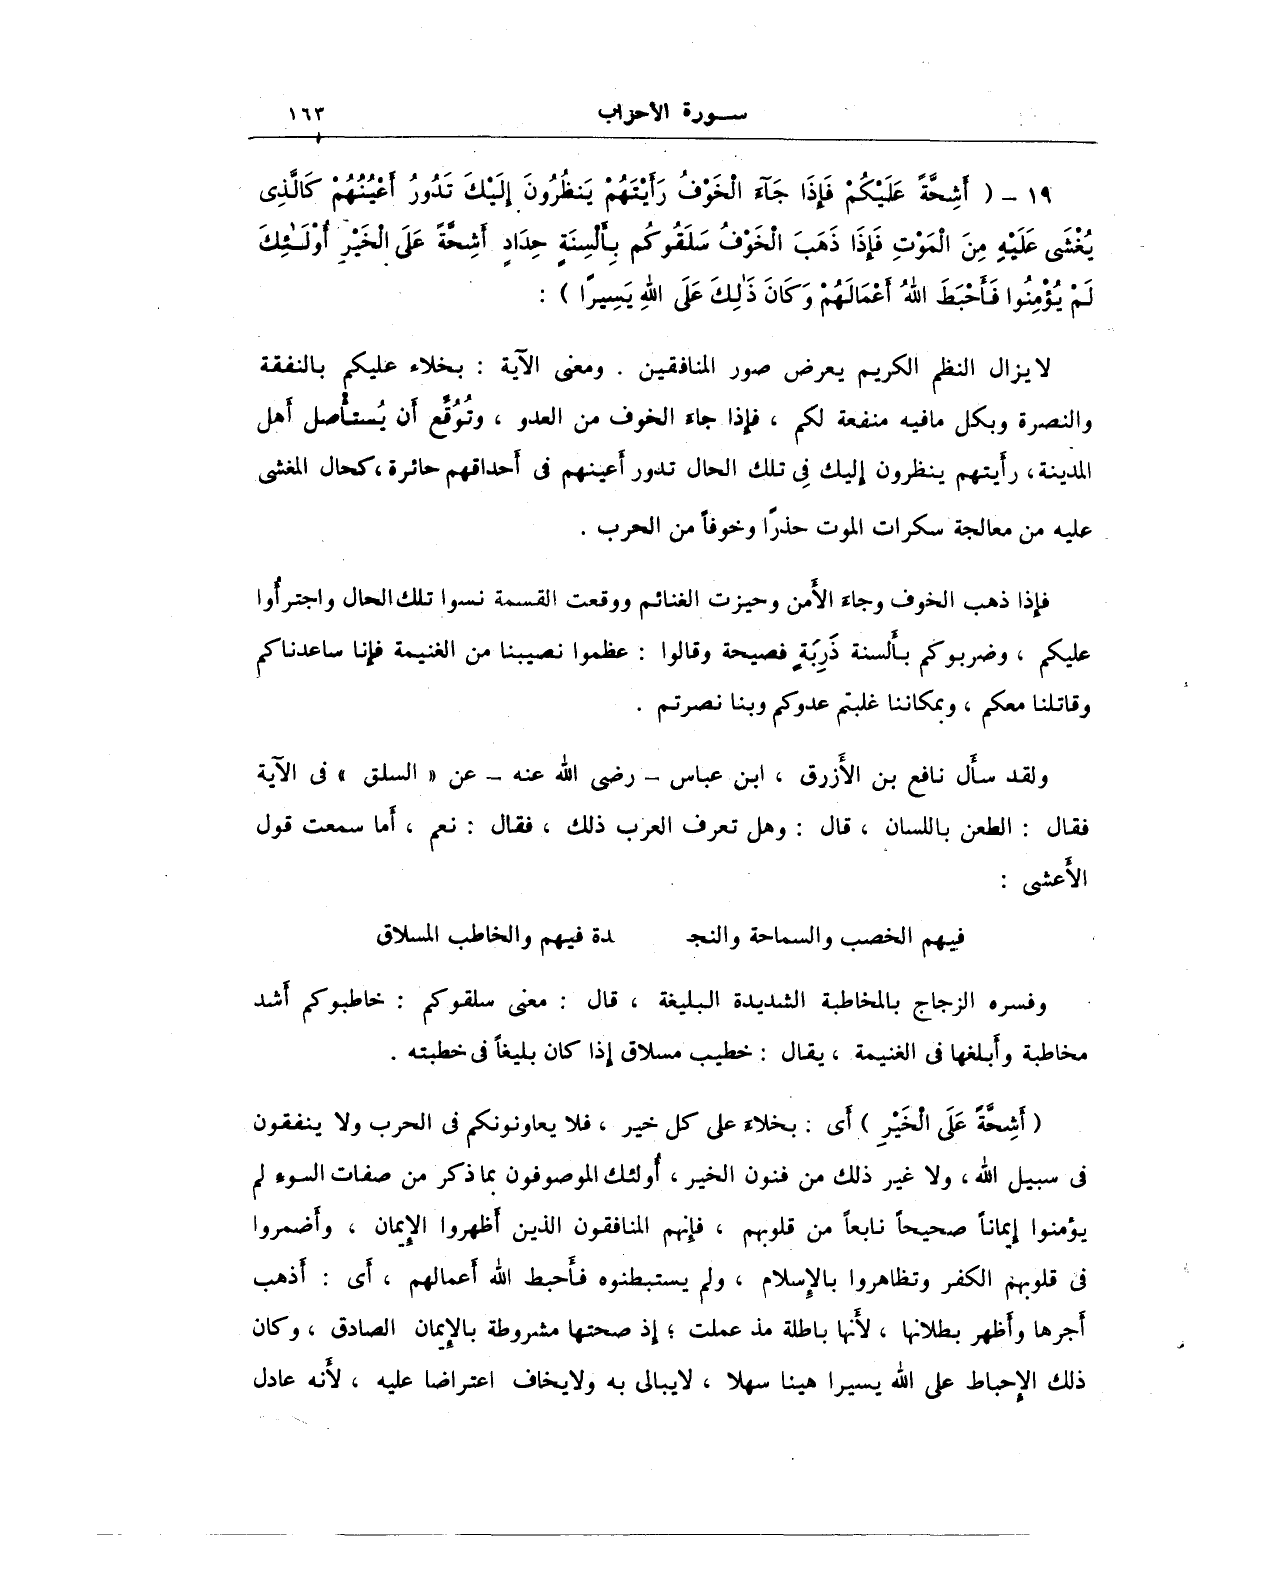 سورة الأحزاب ١٦٣
١٩ – ( أَشِحَّةً عَلَيْكُمْ فَإِذَا جَآءَ الْخَوْفُ رَأَيْتَهُمْ يَنظُرُونَ إِلَيْكَ تَدُورُ أَعْيُنُهُمْ كَالَّذِى
يُغْشَى عَلَيْهِ مِنَ الْمَوْتِ فَإِذَا ذَهَبَ الْخَوْفُ سَلَقُوكُم بِأَلْسِنَةٍ حِدَادٍ أَشِحَّةً عَلَى الْخَيْرِ أُوْلَـٰئِكَ
لَمْ يُؤْمِنُوا فَأَحْبَطَ اللهُ أَعْمَالَهُمْ وَكَانَ ذَٰلِكَ عَلَى اللهِ يَسِيرًا ) :
لايزال النظم الكريم يعرض صور المنافقين . ومعنى الآية : بخلاء عليكم بالنفقة
والنصرة وبكل مافيه منفعة لكم ، فإذا جاء الخوف من العدو ، وتُوُقِّع أَن يُستأْصل أَهل
المدينة، رأَيتهم ينظرون إليك فى تلك الحال تدور أَعينهم فى أَحداقهم حائرة ،كحال المغشى
عليه من معالجة سكرات الموت حذرًا وخوفاً من الحرب .
فإذا ذهب الخوف وجاء الأَمن وحيزت الغنائم ووقعت القسمة نسوا تلك الحال واجترأُوا
عليكم ، وضربوكم بأَلسنة ذَرِبَةٍ فصيحة وقالوا : عظموا نصيبنا من الغنيمة فإنا ساعدناكم
وقاتلنا معكم ، وبمكاننا غلبتم عدوكم وبنا نصرتم .
ولقد سأَل نافع بن الأَزرق ، ابن عباس – رضى الله عنه – عن « السلق » فى الآية
فقال : الطعن باللسان ، قال : وهل تعرف العرب ذلك ، فقال : نعم ، أَما سمعت قول
الأَعشى :
فيهم الخصب والسماحة والنجـ دة فيهم والخاطب المسلاق
وفسره الزجاج بالمخاطبة الشديدة البليغة ، قال : معنى سلقوكم : خاطبوكم أَشد
مخاطبة وأَبلغها فى الغنيمة ، يقال : خطيب مسلاق إذا كان بليغاً فى خطبته .
( أَشِحَّةً عَلَى الْخَيْرِ ) أَى : بخلاء على كل خير ، فلا يعاونونكم فى الحرب ولا ينفقون
فى سبيل الله ، ولا غير ذلك من فنون الخير ، أُولئك الموصوفون بما ذكر من صفات السوء لم
يؤمنوا إيماناً صحيحاً نابعاً من قلوبهم ، فإنهم المنافقون الذين أَظهروا الإيمان ، وأَضمروا
فى قلوبهم الكفر وتظاهروا بالإسلام ، ولم يستبطنوه فأَحبط الله أَعمالهم ، أَى : أَذهب
أَجرها وأَظهر بطلانها ، لأَنها باطلة مذ عملت ؛ إذ صحتها مشروطة بالإيمان الصادق ، وكان
ذلك الإحباط على الله يسيرا هينا سهلا ، لايبالى به ولايخاف اعتراضا عليه ، لأَنه عادل